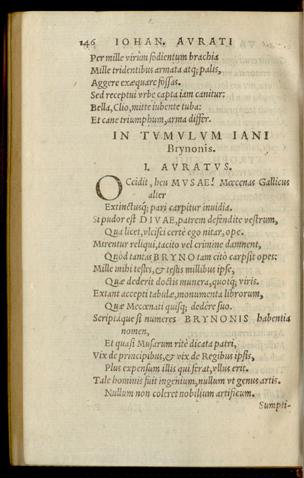 146 IOHAN. AVRATI
Per mille virûm fodientum brachia
Mille tridentibus armata atq; palis,
Aggere exæquare fossas.
Sed receptui vrbe capta iam canitur:
Bella, Clio, mitte iubente tuba:
Et cane triumphum, arma differ.
IN TVMVLVM IANI
Brynonis.
I. AVRATVS.
OCcidit, heu MVSAE! Mæcenas Gallicus
alter
Extinctusq; pari carpitur inuidia.
Si pudor est DIVAE, patrem defendite vestrum,
Qua licet, vlcisci certè ego nitar, ope.
Mirentur reliqui, tacito vel crimine damnent,
Quòd tantas BRYNO tam citò carpsit opes:
Mille mihi testes, & testis millibus ipse,
Quæ dederit doctis munera, quotq; viris.
Extant accepti tabulæ, monumenta librorum,
Quæ Mecœnati quisq; dedére suo.
Scriptaque si numeres BRYNONIS habentia
nomen,
Et quasi Musarum ritè dicata patri,
Vix de principibus, & vix de Regibus ipsis,
Plus expensum illis qui ferat, vllus erit.
Tale hominis fuit ingenium, nullum vt genus artis.
Nullum non coleret nobilium artificum.
Sumpti-